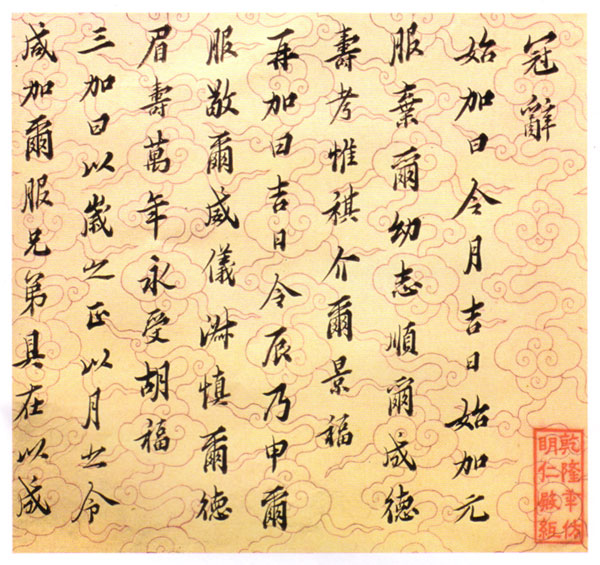 冠辭
始加曰令月吉日始加元
服棄爾幼志順爾成德
壽考惟祺介爾景福
再加曰吉日令辰乃申爾
服敬爾威儀淑慎爾德
眉壽萬年永受胡福
三加曰以歲之正以月之令
咸加爾服兄弟具在以成
乾隆年仿
明仁殿紙